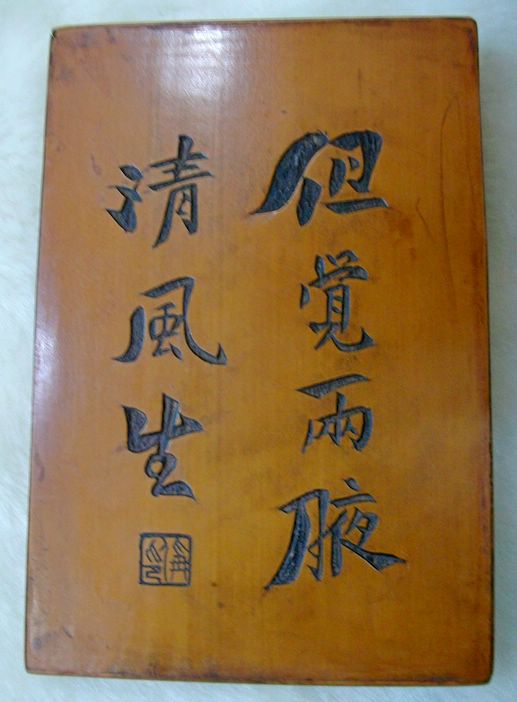 但覺兩腋
清風生